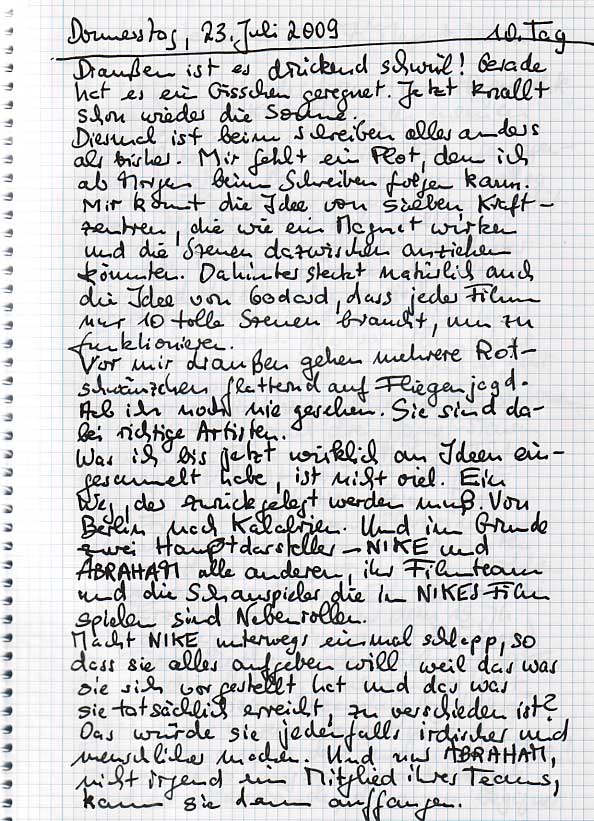 Donnerstag, 23. Juli 2009 10. Tag
Draußen ist es drückend schwül! Gerade
hat es ein bisschen geregnet. Jetzt knallt
schon wieder die Sonne.
Diesmal ist beim Schreiben alles anders
als bisher. Mir fehlt ein Plot, dem ich
ab Morgen beim Schreiben folgen kann.
Mir kommt die Idee von sieben Kraft-
zentren, die wie ein Magnet wirken
und die Szenen dazwischen anziehen
könnten. Dahinter steckt natürlich auch
die Idee von Godard, dass jeder Film
nur 10 tolle Szenen braucht, um zu
funktionieren.
Vor mir draußen gehen mehrere Rot-
schwänzchen flatternd auf Fliegenjagd.
Hab ich noch nie gesehen. Sie sind da-
bei richtige Artisten.
Was ich bis jetzt wirklich an Ideen ein-
gesammelt habe, ist nicht viel. Ein
Weg, der zurückgelegt werden muß. Von
Berlin nach Kalabrien. Und im Grunde
zwei Hauptdarsteller – NIKE und
ABRAHAM alle anderen, ihr Filmteam
und die Schauspieler die in NIKES Film
spielen sind Nebenrollen.
Macht NIKE unterwegs einmal schlapp, so
dass sie alles aufgeben will weil das was
sie sich vorgestellt hat und das was
sie tatsächlich erreicht, zu verschieden ist?
Das würde sie jedenfalls irdischer und
menschlicher machen. Und nur ABRAHAM,
nicht irgend ein Mitglied ihres Teams,
kann sie dann auffangen.